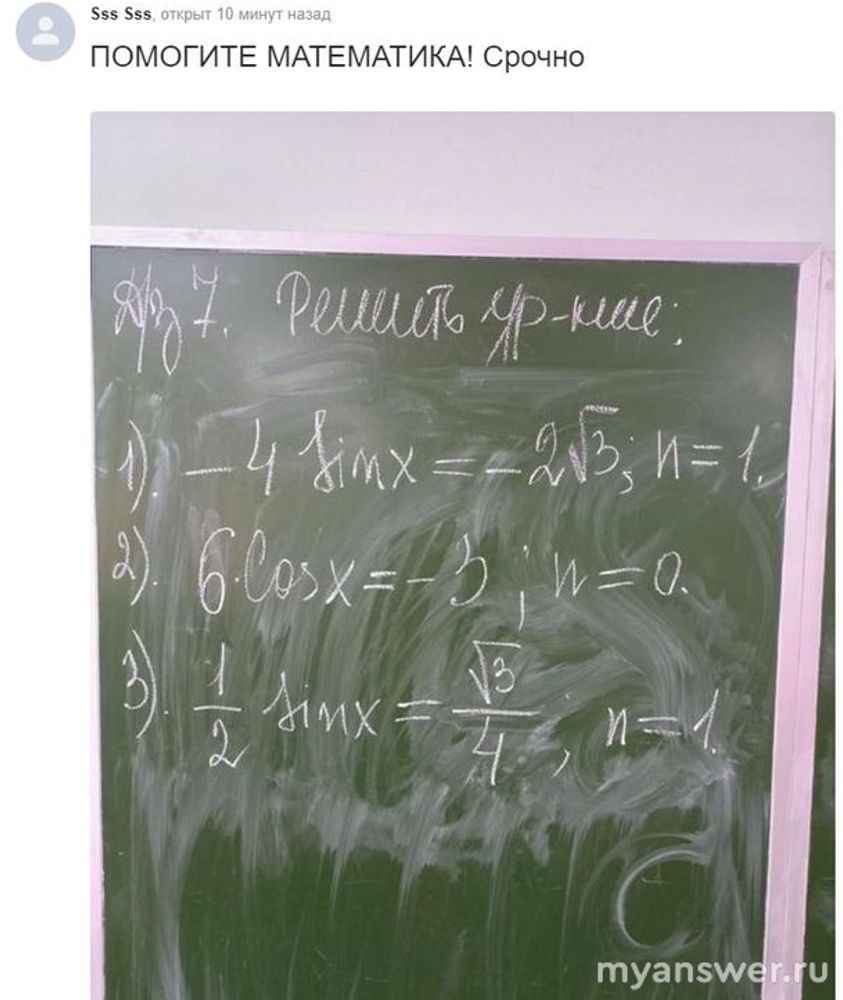 Sss Sss, открыт 10 минут назад
ПОМОГИТЕ МАТЕМАТИКА! Срочно
Д/з 7. Решить ур-ние:
1). -4 sinx = -2√3; n=1.
2). 6·cosx = -3; n=0.
3). 1/2 sinx = √3/4; n=1.
myanswer.ru